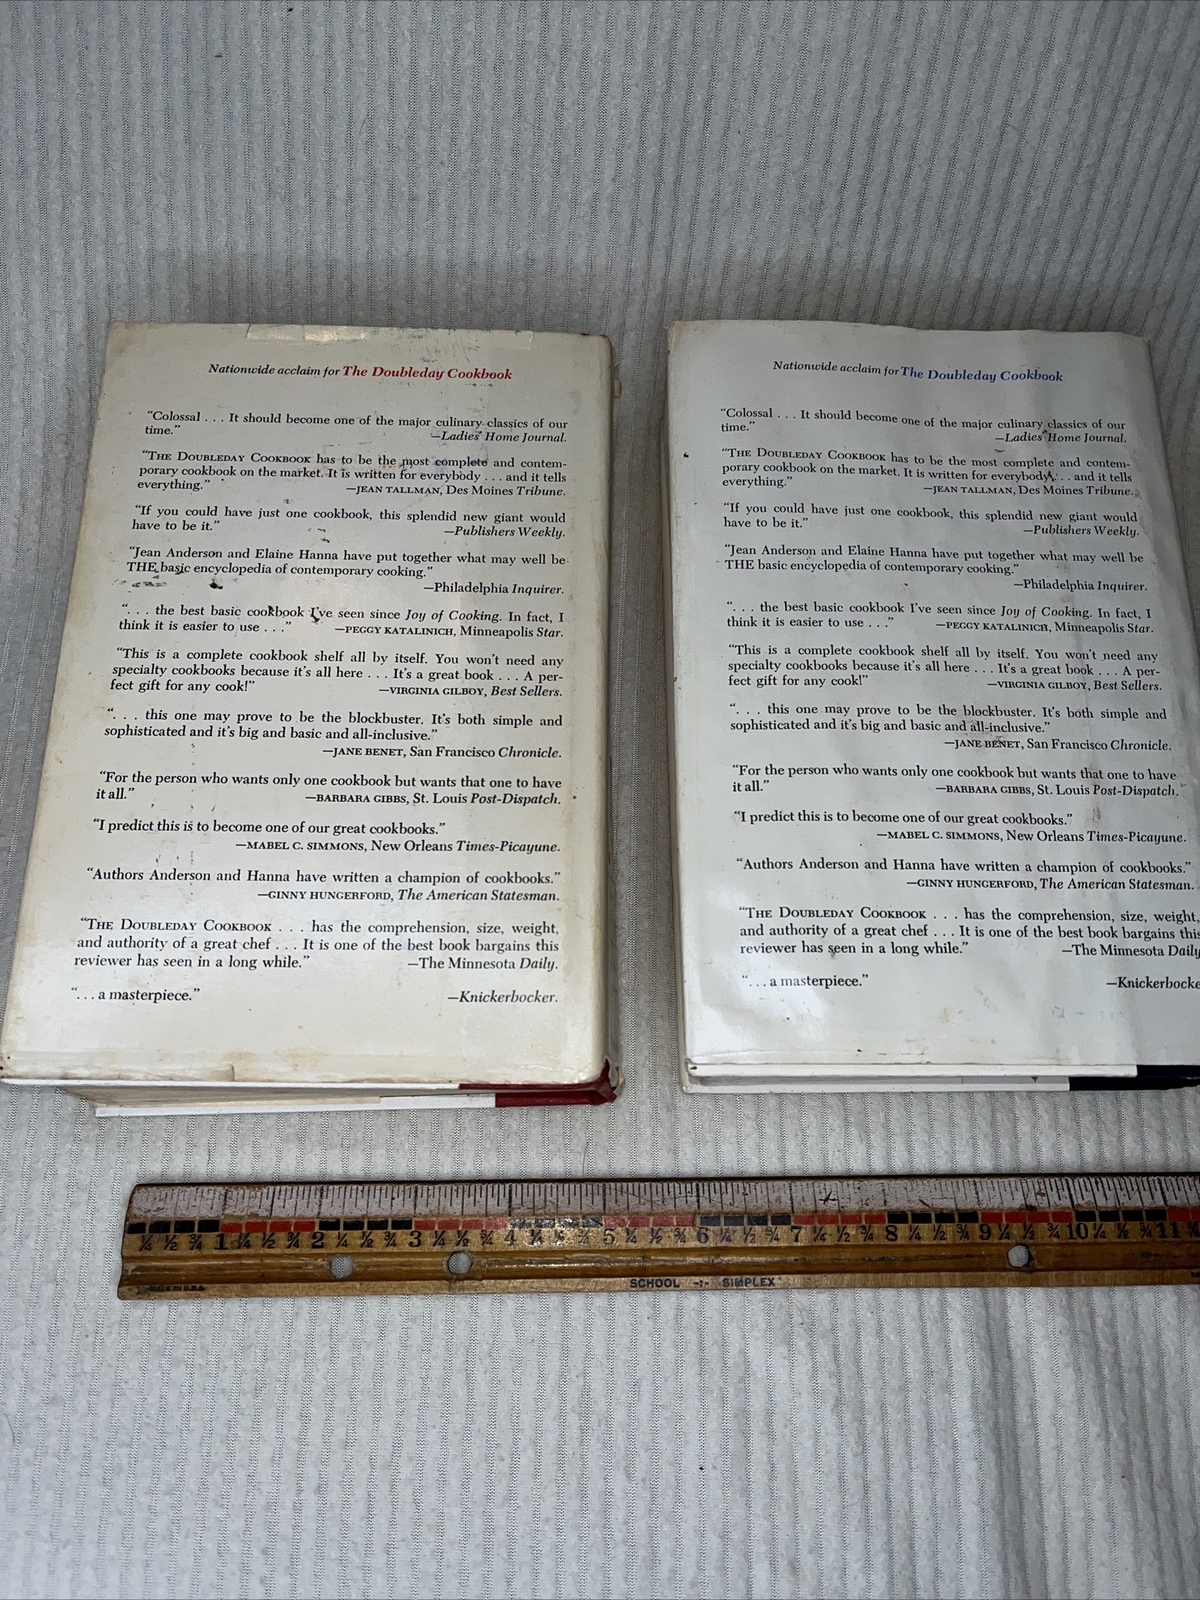 Nationwide acclaim for The Doubleday Cookbook
"Colossal . . . It should become one of the major culinary classics of our
time."
—Ladies' Home Journal.
"THE DOUBLEDAY COOKBOOK has to be the most complete and contem-
porary cookbook on the market. It is written for everybody . . . and it tells
everything."
—JEAN TALLMAN, Des Moines Tribune.
"If you could have just one cookbook, this splendid new giant would
have to be it."
—Publishers Weekly.
"Jean Anderson and Elaine Hanna have put together what may well be
THE basic encyclopedia of contemporary cooking."
—Philadelphia Inquirer.
". . . the best basic cookbook I've seen since Joy of Cooking. In fact, I
think it is easier to use . . ."
—PEGGY KATALINICH, Minneapolis Star.
"This is a complete cookbook shelf all by itself. You won't need any
specialty cookbooks because it's all here . . . It's a great book . . . A per-
fect gift for any cook!"
—VIRGINIA GILBOY, Best Sellers.
". . . this one may prove to be the blockbuster. It's both simple and
sophisticated and it's big and basic and all-inclusive."
—JANE BENET, San Francisco Chronicle.
"For the person who wants only one cookbook but wants that one to have
it all."
—BARBARA GIBBS, St. Louis Post-Dispatch.
"I predict this is to become one of our great cookbooks."
—MABEL C. SIMMONS, New Orleans Times-Picayune.
"Authors Anderson and Hanna have written a champion of cookbooks."
—GINNY HUNGERFORD, The American Statesman.
"THE DOUBLEDAY COOKBOOK . . . has the comprehension, size, weight,
and authority of a great chef . . . It is one of the best book bargains this
reviewer has seen in a long while."
—The Minnesota Daily.
". . . a masterpiece."
—Knickerbocker.
Nationwide acclaim for The Doubleday Cookbook
"Colossal . . . It should become one of the major culinary classics of our
time."
—Ladies' Home Journal.
"THE DOUBLEDAY COOKBOOK has to be the most complete and contem-
porary cookbook on the market. It is written for everybody . . . and it tells
everything."
—JEAN TALLMAN, Des Moines Tribune.
"If you could have just one cookbook, this splendid new giant would
have to be it."
—Publishers Weekly.
"Jean Anderson and Elaine Hanna have put together what may well be
THE basic encyclopedia of contemporary cooking."
—Philadelphia Inquirer.
". . . the best basic cookbook I've seen since Joy of Cooking. In fact, I
think it is easier to use . . ."
—PEGGY KATALINICH, Minneapolis Star.
"This is a complete cookbook shelf all by itself. You won't need any
specialty cookbooks because it's all here . . . It's a great book . . . A per-
fect gift for any cook!"
—VIRGINIA GILBOY, Best Sellers.
". . . this one may prove to be the blockbuster. It's both simple and
sophisticated and it's big and basic and all-inclusive."
—JANE BENET, San Francisco Chronicle.
"For the person who wants only one cookbook but wants that one to have
it all."
—BARBARA GIBBS, St. Louis Post-Dispatch.
"I predict this is to become one of our great cookbooks."
—MABEL C. SIMMONS, New Orleans Times-Picayune.
"Authors Anderson and Hanna have written a champion of cookbooks."
—GINNY HUNGERFORD, The American Statesman.
"THE DOUBLEDAY COOKBOOK . . . has the comprehension, size, weight,
and authority of a great chef . . . It is one of the best book bargains this
reviewer has seen in a long while."
—The Minnesota Daily
". . . a masterpiece."
—Knickerbocke
¼ ½ ¾ 1 ¼ ½ ¾ 2 ¼ ½ ¾ 3 ¼ ½ ¾ 4 ¼ ½ ¾ 5 ¼ ½ ¾ 6 ¼ ½ ¾ 7 ¼ ½ ¾ 8 ¼ ½ ¾ 9 ¼ ½ ¾ 10 ¼ ½ ¾ 11 ¼
MADE IN U.S.A.
SCHOOL -:- SIMPLEX